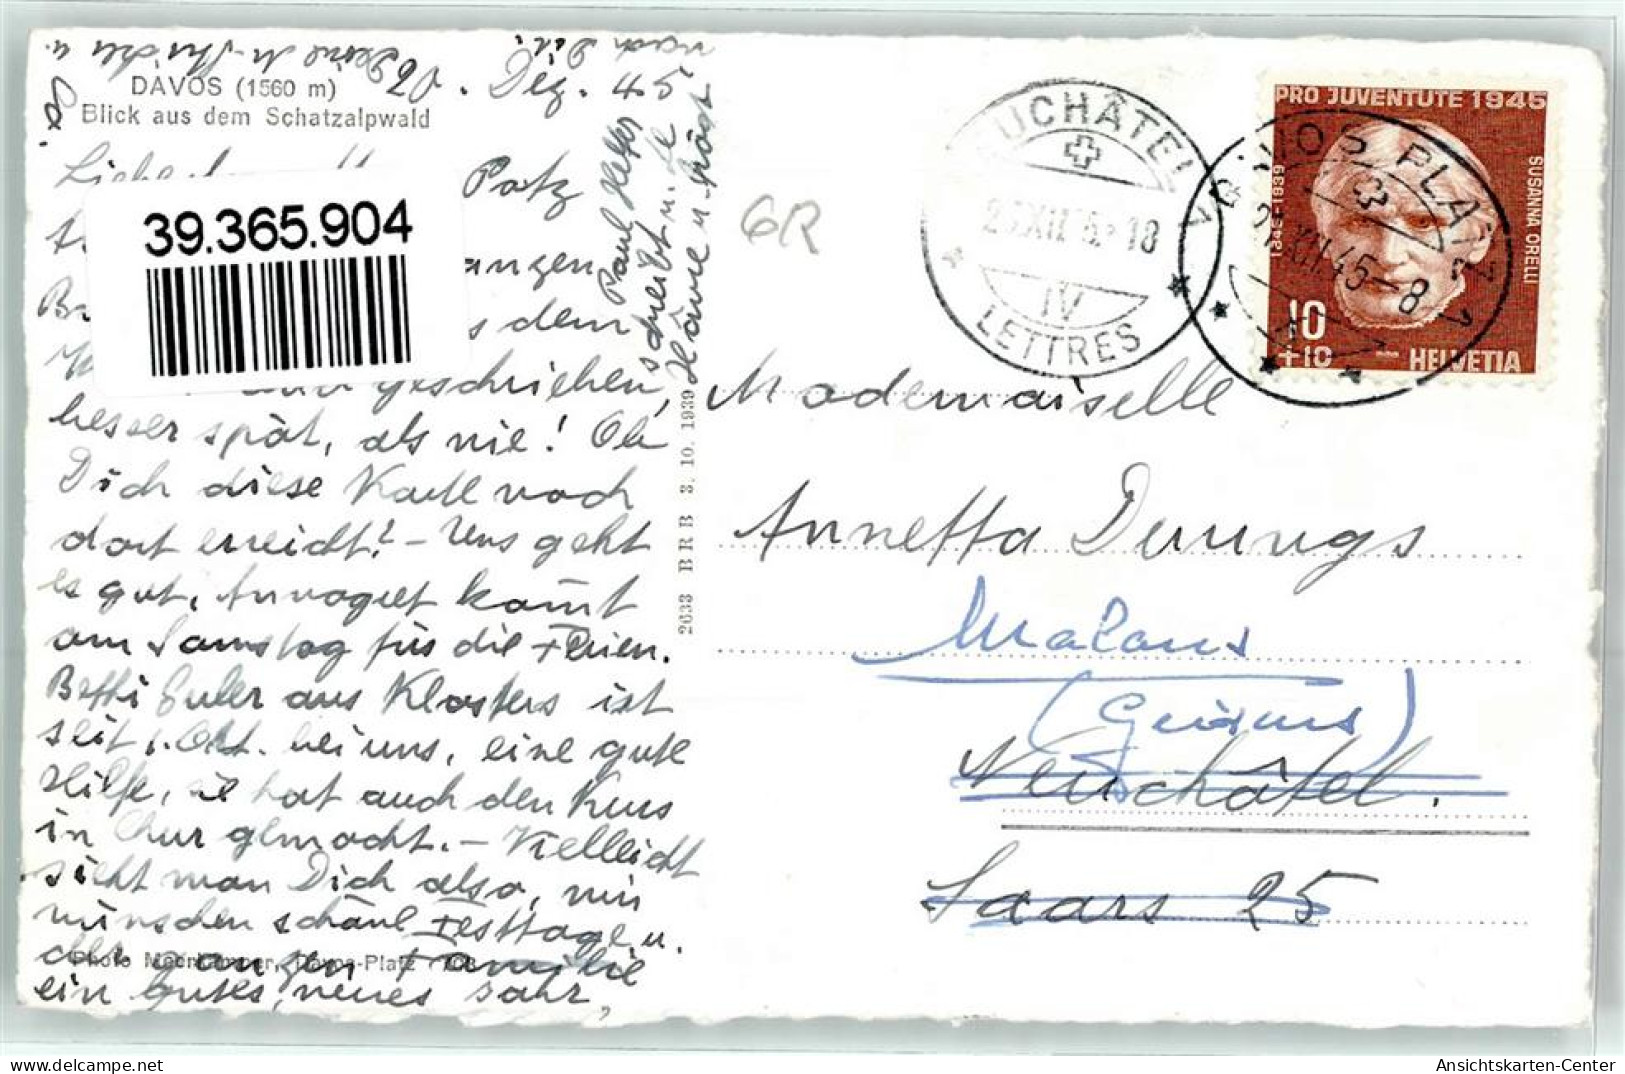 DAVOS (1560 m)
Blick aus dem Schatzalpwald
20. Dez. 45
39.365.904
Patz
dem
geschrieben,
besser spät, als nie! Ob
Dich diese Karte noch
dort erreicht? – Uns geht
es gut, Annagret kommt
am Samstag für die Ferien.
Betti Euler aus Klosters ist
seit 1. Okt. bei uns, eine gute
Hilfe, sie hat auch den Kurs
in Chur gemacht. – Vielleicht
sieht man Dich also, wir
wünschen schöne Festtage u.
der ganzen Familie
ein gutes, neues Jahr,
Photo Davos-Platz
Paul
schreibt
nach Dir.
2633 BRB 3.10.1939
GR
NEUCHÂTEL
XII 18
IV
LETTRES
DAVOS PLATZ
XII.45–8
PRO JUVENTUTE 1945
SUSANNA ORELLI
1845–1939
10
+10
HELVETIA
Mademoiselle
Annetta Denungs
Malans
(Geiaus)
Neuchâtel.
Saars 25
AnsichtsKarten-Center